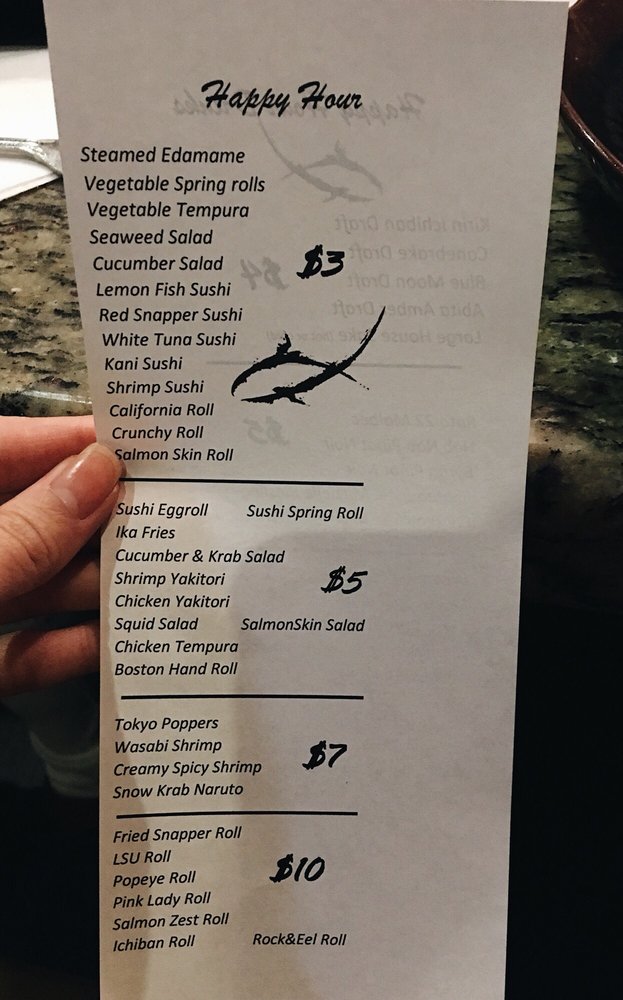 Happy Hour
Steamed Edamame
Vegetable Spring rolls
Vegetable Tempura
Seaweed Salad
Cucumber Salad $3
Lemon Fish Sushi
Red Snapper Sushi
White Tuna Sushi
Kani Sushi
Shrimp Sushi
California Roll
Crunchy Roll
Salmon Skin Roll
Sushi Eggroll Sushi Spring Roll
Ika Fries
Cucumber & Krab Salad
Shrimp Yakitori $5
Chicken Yakitori
Squid Salad SalmonSkin Salad
Chicken Tempura
Boston Hand Roll
Tokyo Poppers
Wasabi Shrimp $7
Creamy Spicy Shrimp
Snow Krab Naruto
Fried Snapper Roll
LSU Roll
Popeye Roll $10
Pink Lady Roll
Salmon Zest Roll
Ichiban Roll Rock&Eel Roll
Kirin Ichiban Draft
Canebrake Draft
Blue Moon Draft $4
Abita Amber Draft